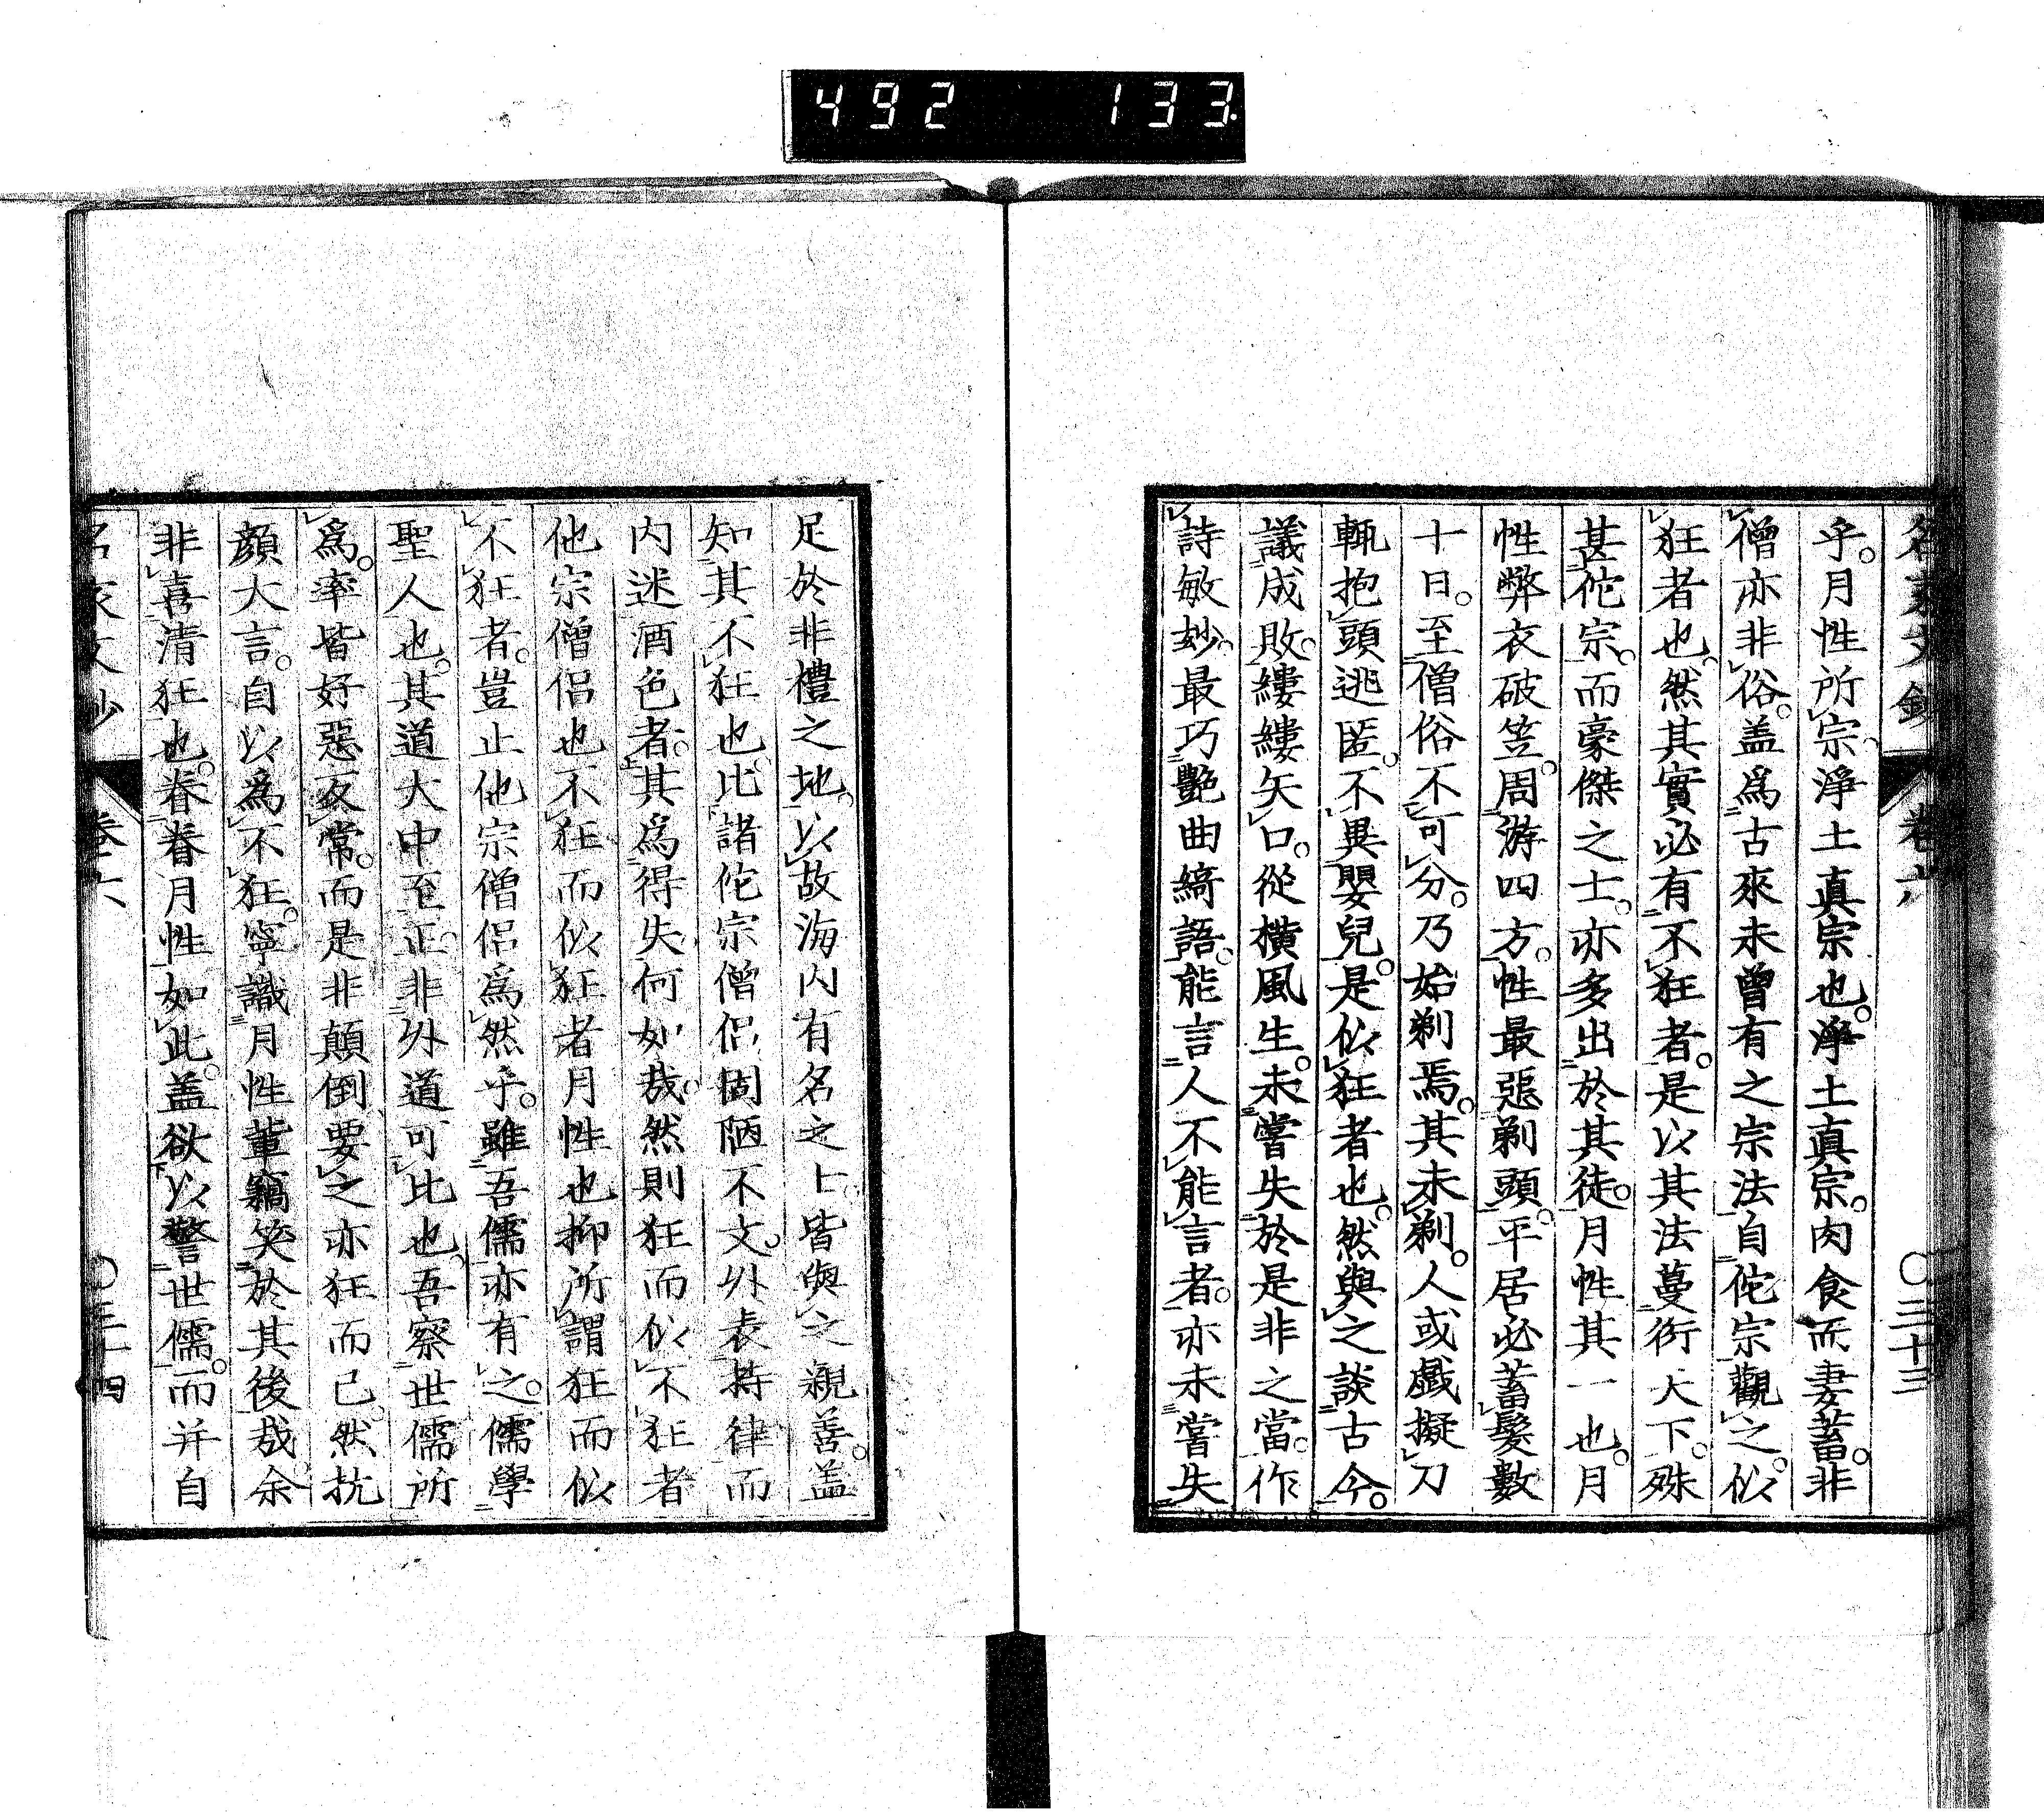 492 133
名家文鈔 卷六 〇三十三
乎。月性所宗。淨土真宗也。淨土真宗。肉食而妻蓄。非
僧亦非俗。盖爲古來未曾有之宗法。自佗宗觀之。似
狂者也。然其實必有不狂者。是以其法蔓衍天下。殊
甚佗宗。而豪傑之士。亦多出於其徒。月性其一也。月
性弊衣破笠。周游四方。性最惡剃頭。平居必蓄髮數
十日。至僧俗不可分。乃始剃焉。其未剃。人或戯擬刀
輒抱頭逃匿。不異嬰兒。是似狂者也。然與之談古今。
議成敗。縷縷矢口。從橫風生。未嘗失於是非之當。作
詩敏妙。最巧艷曲綺語。能言人不能言者。亦未嘗失
足於非禮之地。以故海内有名之士。皆與之親善。盖
知其不狂也。比諸佗宗僧侶。固陋不文。外表持律而
内迷酒色者。其爲得失何如哉。然則狂而似不狂者
他宗僧侶也。不狂而似狂者月性也。抑所謂狂而似
不狂者。豈止他宗僧侶爲然乎。雖吾儒亦有之。儒學
聖人也。其道大中至正。非外道可比也。吾察世儒所
爲。率皆好惡反常。而是非顛倒。要之亦狂而已。然抗
顏大言。自以爲不狂。寧識月性輩竊笑於其後哉。余
非喜清狂也。眷眷月性如此。盖欲以警世儒。而并自
名家文鈔 卷六 〇三十四